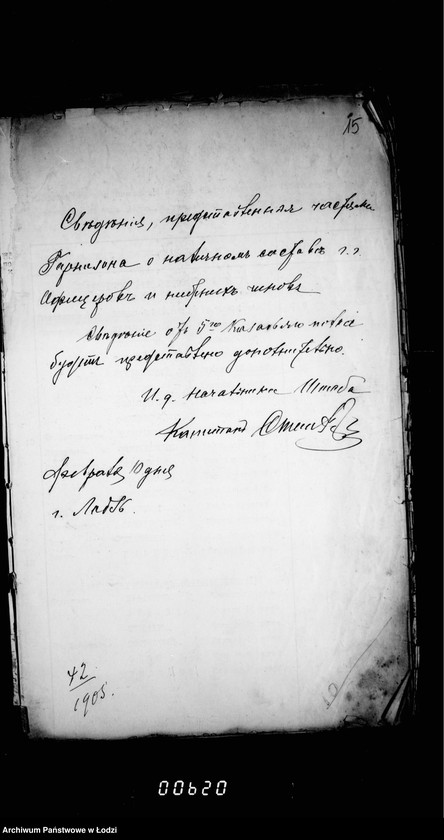 15
Свѣдѣнія, представленныя частями
Гарнизона о наличномъ составѣ г.г.
Офицеровъ и нижнихъ чиновъ
Свѣдѣніе отъ 5го Казачьяго полка
будетъ представлено дополнительно.
И. д. Начальника Штаба
Капитанъ
Февраля 10 дня
г. Лодзь.
42
1905.
00620
Archiwum Państwowe w Łodzi